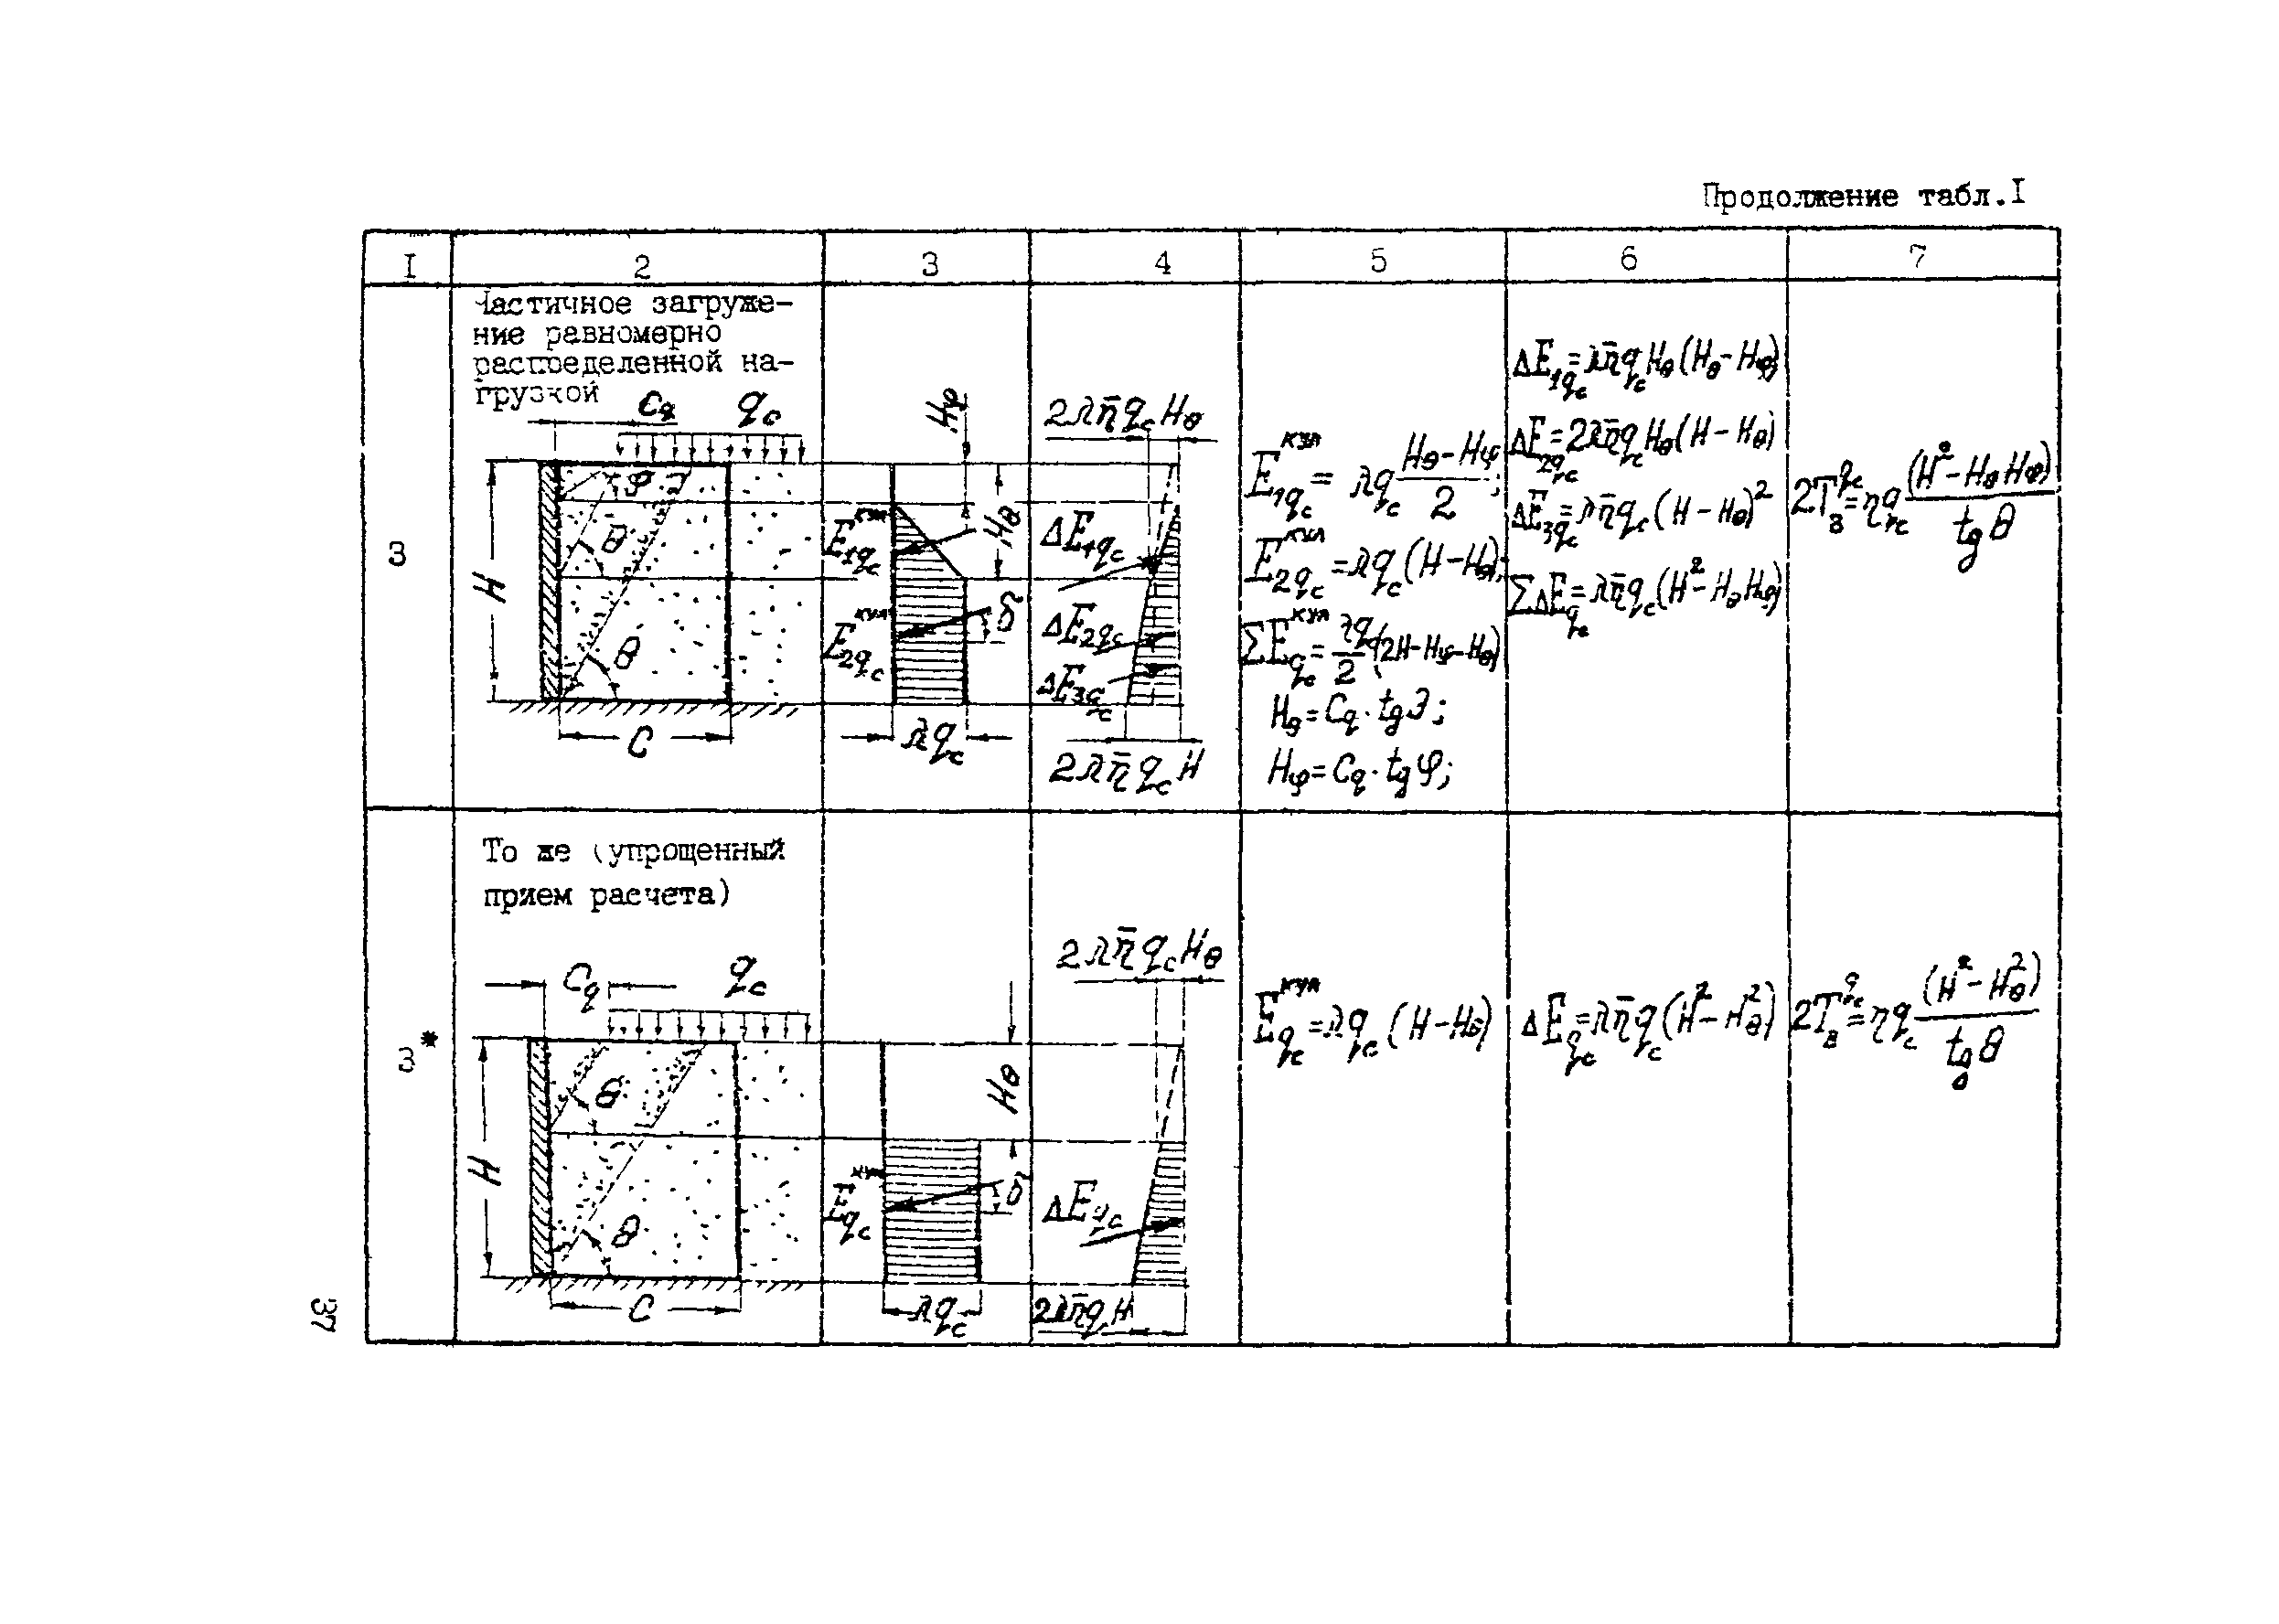 Продолжение табл.I
I 2 3 4 5 6 7
3
Частичное загруже-
ние равномерно
распределенной на-
грузкой
C_q q_c
φ
θ
θ
H
C
H_φ
H_θ
E_{1q_c}^{кул}
E_{2q_c}^{кул}
δ
λq_c
2λη̄q_cH_θ
ΔE_{1q_c}
ΔE_{2q_c}
ΔE_{3q_c}
2λη̄q_cH
E_{1q_c}^{кул} = λq_c (H_θ - H_φ)/2;
E_{2q_c}^{кул} = λq_c (H - H_θ);
ΣE_{q_c}^{кул} = λq_c/2 (2H - H_φ - H_θ)
H_θ = C_q · tg θ;
H_φ = C_q · tg φ;
ΔE_{1q_c} = λη̄q_c H_θ (H_θ - H_φ)
ΔE_{2q_c} = 2λη̄q_c H_θ (H - H_θ)
ΔE_{3q_c} = λη̄q_c (H - H_θ)²
ΣΔE_{q_c} = λη̄q_c (H² - H_θ H_φ)
2T_в^{q_c} = ηq_c (H² - H_θ H_φ)/tg θ
3*
То же (упрощенный
прием расчета)
C_q q_c
θ
θ
H
C
H_θ
E_{q_c}^{кул}
δ
λq_c
2λη̄q_cH_θ
ΔE_{q_c}
2λη̄q_cH
E_{q_c}^{кул} = λq_c (H - H_θ)
ΔE_{q_c} = λη̄q_c (H² - H_θ²)
2T_в^{q_c} = ηq_c (H² - H_θ²)/tg θ
37